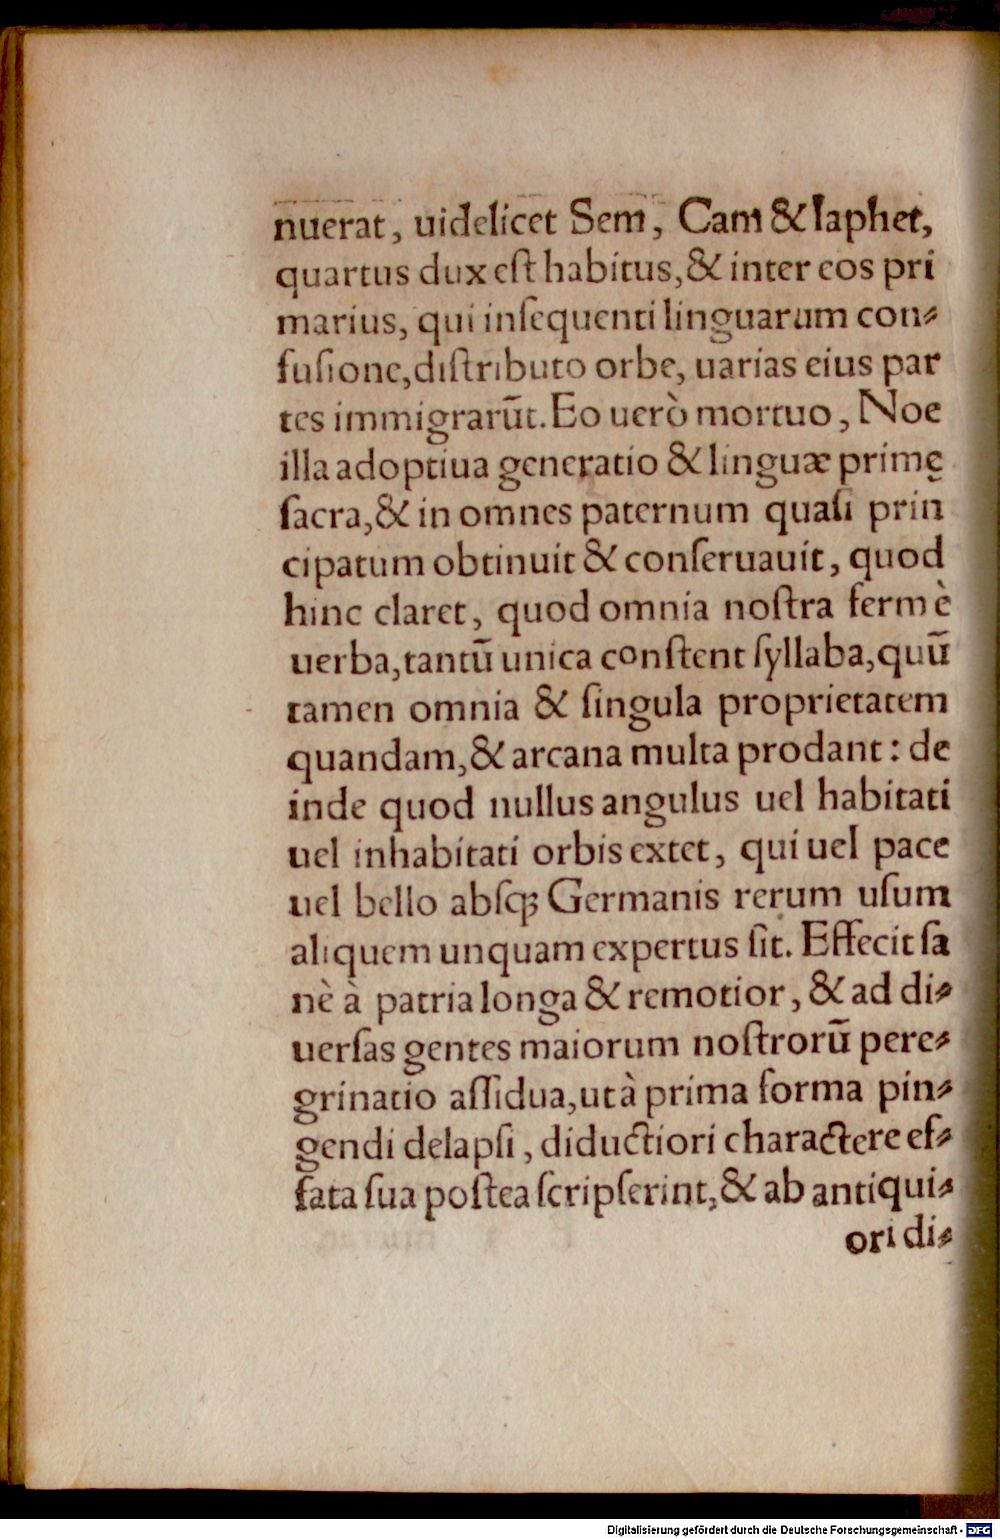 nuerat, uidelicet Sem, Cam & Iaphet,
quartus dux eſt habitus, & inter eos pri
marius, qui inſequenti linguarum con⸗
fuſione, diſtributo orbe, uarias eius par
tes immigrarūt. Eo uerò mortuo, Noe
illa adoptiua generatio & linguæ primę
ſacra, & in omnes paternum quaſi prin
cipatum obtinuit & conſeruauit, quod
hinc claret, quod omnia noſtra fermè
uerba, tantū unica conſtent ſyllaba, quū
tamen omnia & ſingula proprietatem
quandam, & arcana multa prodant: de
inde quod nullus angulus uel habitati
uel inhabitati orbis extet, qui uel pace
uel bello abſqꝫ Germanis rerum uſum
aliquem unquam expertus ſit. Effecit ſa
nè à patria longa & remotior, & ad di⸗
uerſas gentes maiorum noſtrorū pere⸗
grinatio aſſidua, ut à prima forma pin⸗
gendi delapſi, diductiori charactere ef⸗
fata ſua poſtea ſcripſerint, & ab antiqui⸗
ori di⸗
Digitalisierung gefördert durch die Deutsche Forschungsgemeinschaft - DFG